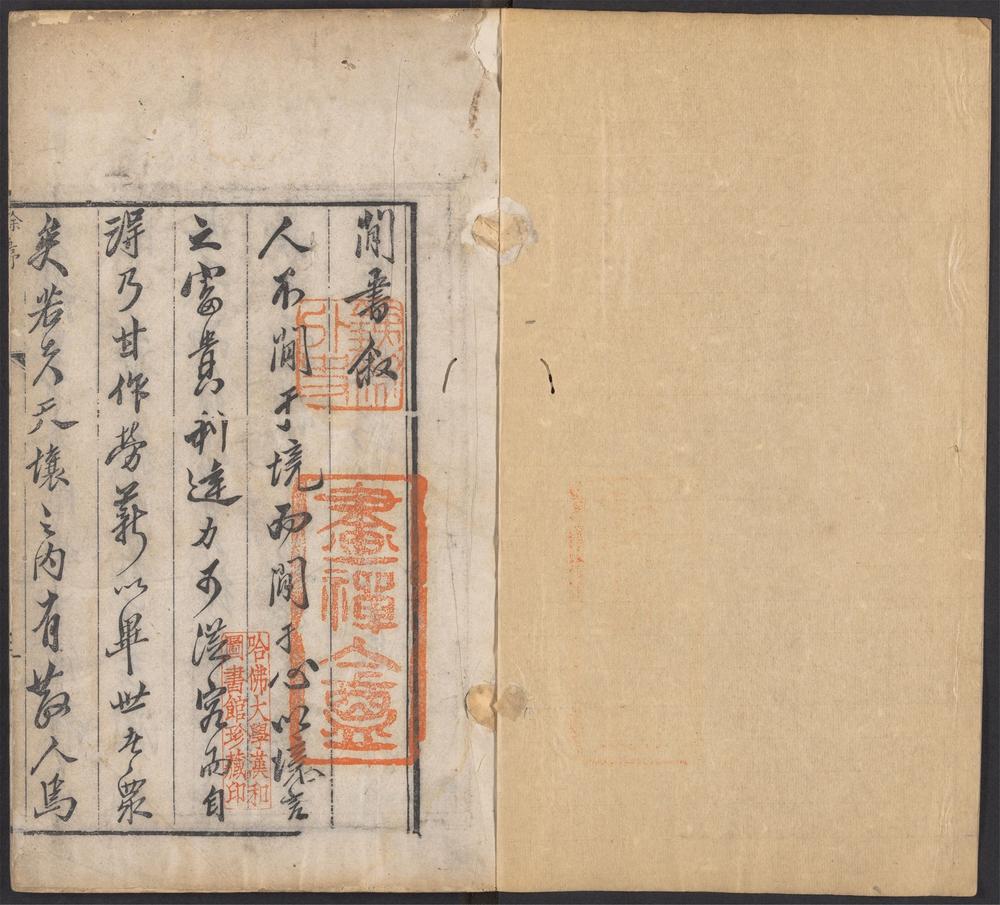 閒書叙
人不閒于境而閒于心以境言
之富貴利達力可從容而自
得乃甘作勞薪以畢世者衆
矣若夫天壤之內有散人焉
哈佛大學漢和
圖書館珍藏印